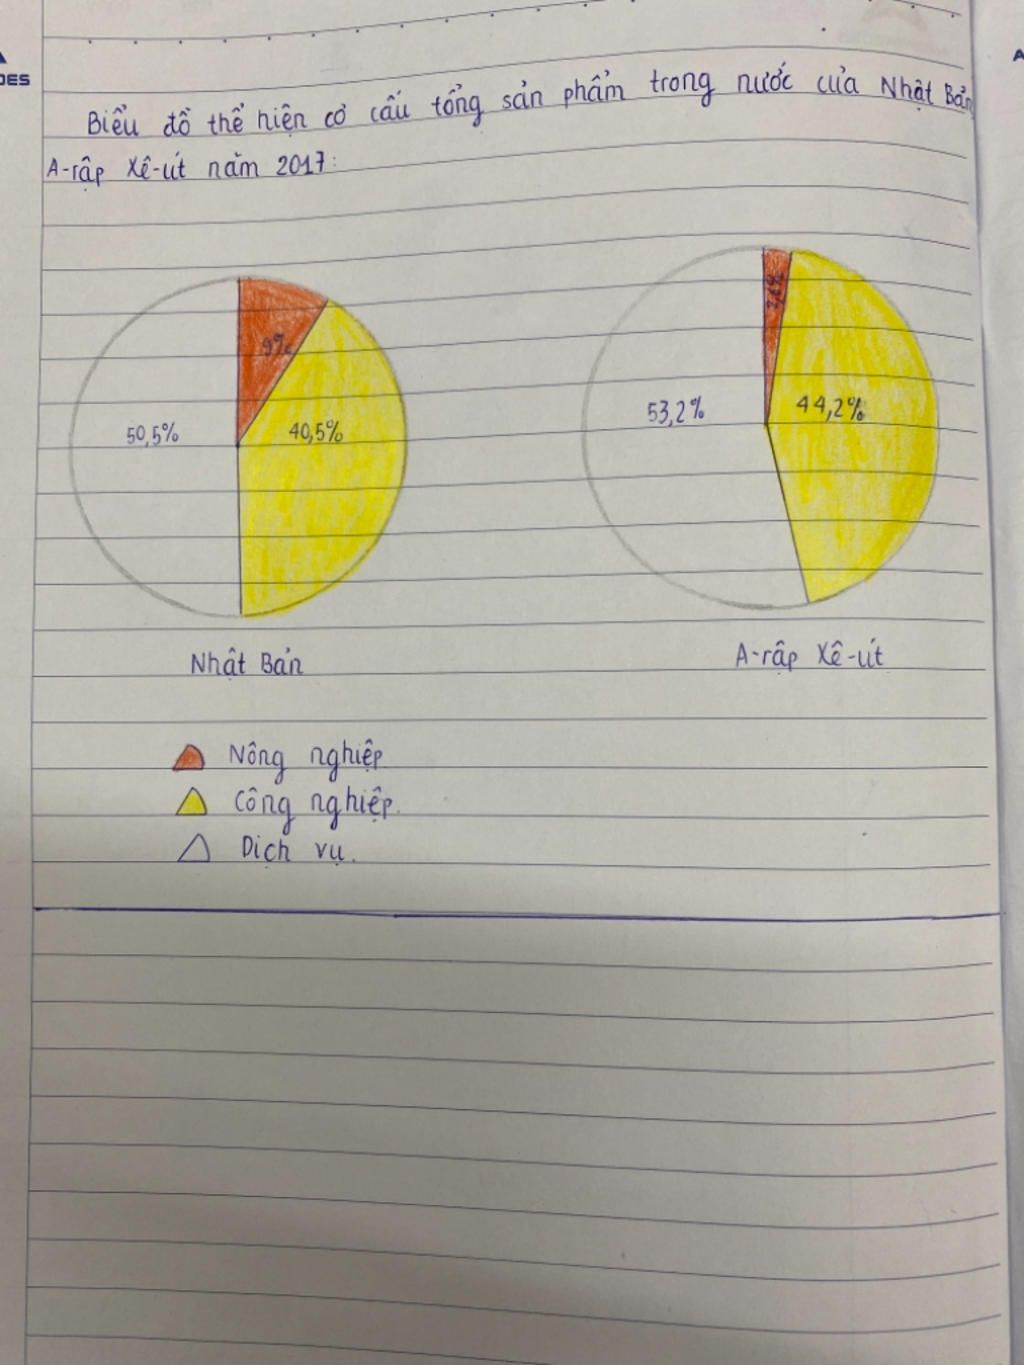 DES
A
Biểu đồ thể hiện cơ cấu tổng sản phẩm trong nước của Nhật Bản
A-rập Xê-út năm 2017:
9%
50,5%
40,5%
53,2%
44,2%
Nhật Bản
A-rập Xê-út
Nông nghiệp
Công nghiệp.
Dịch vụ.